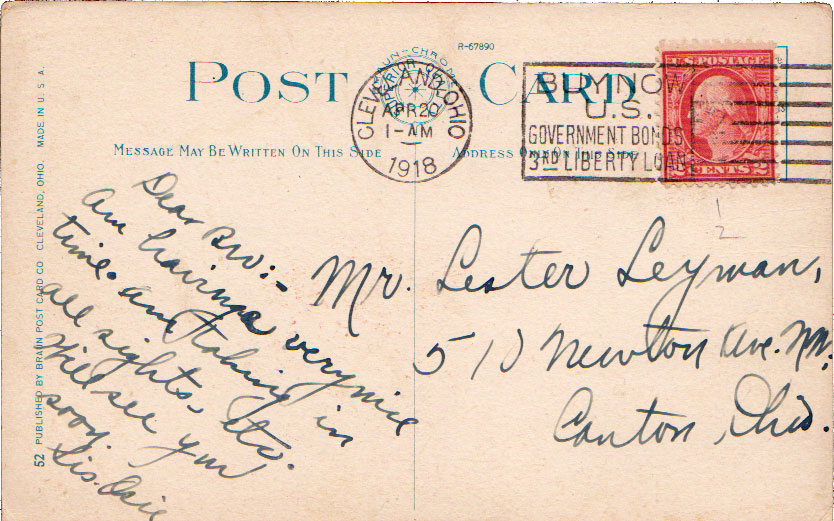 R-67890
POST CARD
CLEVELAND, OHIO
APR 20
1-AM
1918
BUY NOW
U.S.
GOVERNMENT BONDS
3RD LIBERTY LOAN
U.S. POSTAGE
CENTS 2
MESSAGE MAY BE WRITTEN ON THIS SIDE
ADDRESS ONLY ON THIS SIDE
52 PUBLISHED BY BRAUN POST CARD CO CLEVELAND, OHIO. MADE IN U.S.A.
Dear Bro:-
Am having a very nice
time. am taking in
all sights, etc.
Will see you
soon.
Sis.
Mr. Lester Leyman,
510 Newton Ave. N.W.
Canton, Ohio.
1
2